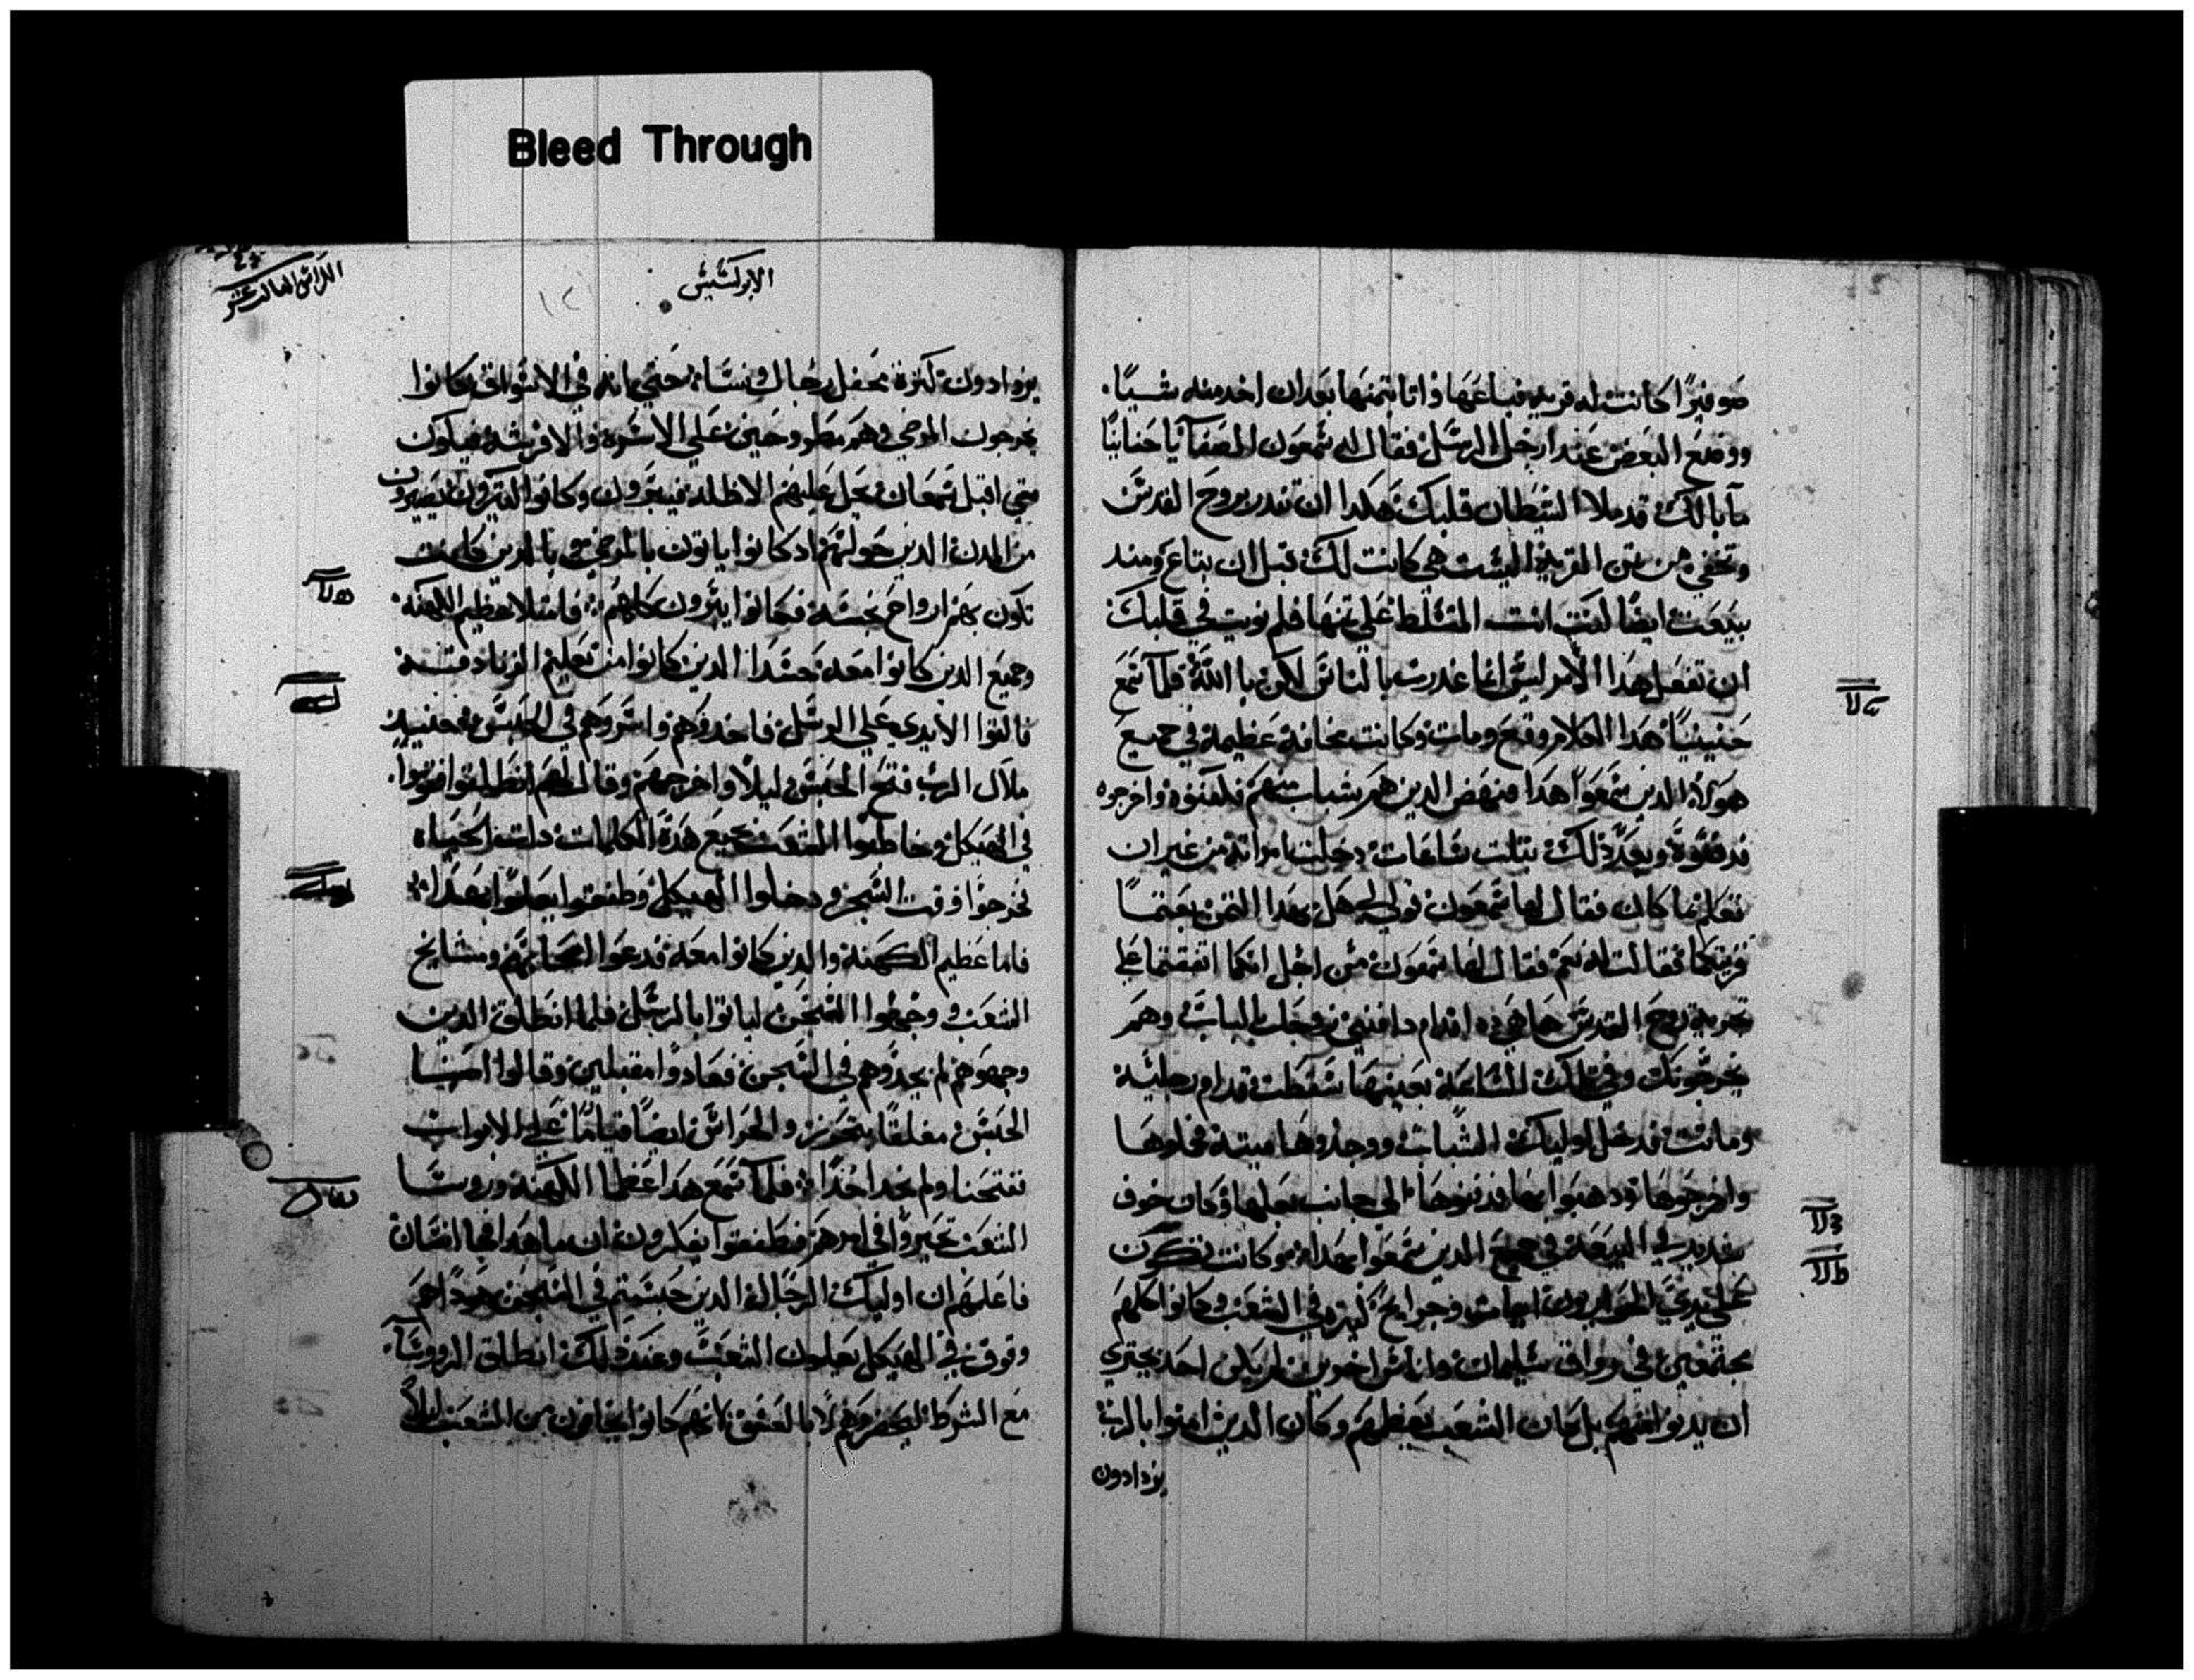 Bleed Through
صوفيرا كانت له قريه فباعها واتا بتمنها بعد ان اخد منه شيا
ووضع البعض عند ارجل الرسل فقال له شمعون الصفا يا حنانيا
ما بالك قد ملا الشيطان قلبك هكدا ان تغدر بروح القدس
وتخفي من تمن القريه اليست هي كانت لك قبل ان تباع ومند
بيعت ايضا انت المتسلط على تمنها فلم نويت في قلبك
ان تفعل هدا الامر ليس انما غدرت بالناس لاكن بالله فلما سمع
حنينيا هدا الكلام وقع ومات وكانت مخافة عظيمة في جميع
هولاء الدين سمعوا هدا فنهض الدين هم شباب منهم فكفنوه واخرجوه
فدفنوه وبعد ذلك بتلت ساعات دخلت امراته من غير ان
تعلم ما كان فقال لها شمعون قولي لي هل بهدا التمن بعتما
قريتكما فقالت له نعم فقال لها شمعون من اجل انكما اتفقتما على
تجربة روح القدس ها هي ده اقدام دافني زوجك بالباب وهم
يخرجونك وفي تلك الساعة بعينها سقطت قدام رجليه
وماتت فدخل اوليك الشباب ووجدوها ميتة فحملوها
واخرجوها ودهبوا بها فدفنوها الى جانب بعلها وكان خوف
شديد في البيعة في جميع الدين سمعوا بهدا وكانت تكون
على يدي الحواريون ايات وجرايح كتيره في الشعب وكانوا كلهم
مجتمعين في رواق سليمان واناس اخرين لم يكن احد يجتري
ان يدنوا منهم بل كان الشعب يعظمهم وكان الدين امنوا بالرب
يزدادون
الابركسيس
الكراس الثالث عشر
يزدادون كترة محفل رجال ونساء حتى انه في الاسواق كانوا
يخرجون المرضى وهم مطروحين على الاسره والافرشه فيكون
متى اقبل شمعان يحل عليهم الاظلال فيبرون وكانوا الكتيرون يصيرون
من المدن الدين حولهم اد كانوا ياتون بالمرضى بالدين كانت
تكون بهم ارواح نجسة فكانوا يبرون كلهم فامتلا عظيم الكهنة
وجميع الدين كانوا معه حسدا الدين كانوا من تعليم الزنادقة
فالقوا الايدي على الرسل فاخدوهم واسروهم في الحبس حينيد
ملاك الرب فتح الحبس ليلا واخرجهم وقال لهم انطلقوا فقوموا
في الهيكل وخاطبوا الشعب بجميع هده الكلمات دات الحياة
فخرجوا وقت السحر ودخلوا الهيكل وطفقوا يعلموا بهدا
فاما عظيم الكهنة والدين كانوا معه فدعوا اصحابهم ومشايخ
الشعب ووجهوا السجن لياتوا بالرسل فلما انطلق الدين
وجهوهم لم يجدوهم في السجن فعادوا مقبلين وقالوا اصبنا
الحبس مغلقا بتحرز والحراس ايضا قياما على الابواب
ففتحنا ولم نجد احدا فلما سمع هدا عظما الكهنة وروسا
الشعب تحيروا في امرهم فطفقوا يفكرون ان ما هدا فجا انسان
فاعلمهم ان اوليك الرجال الدين حبستم في السجن هودا هم
وقوف في الهيكل يعلمون الشعب وعند دلك انطلق الروسا
مع الشرط ليحضروهم لا بالعنف لانهم كانوا يخافون من الشعب ليلا